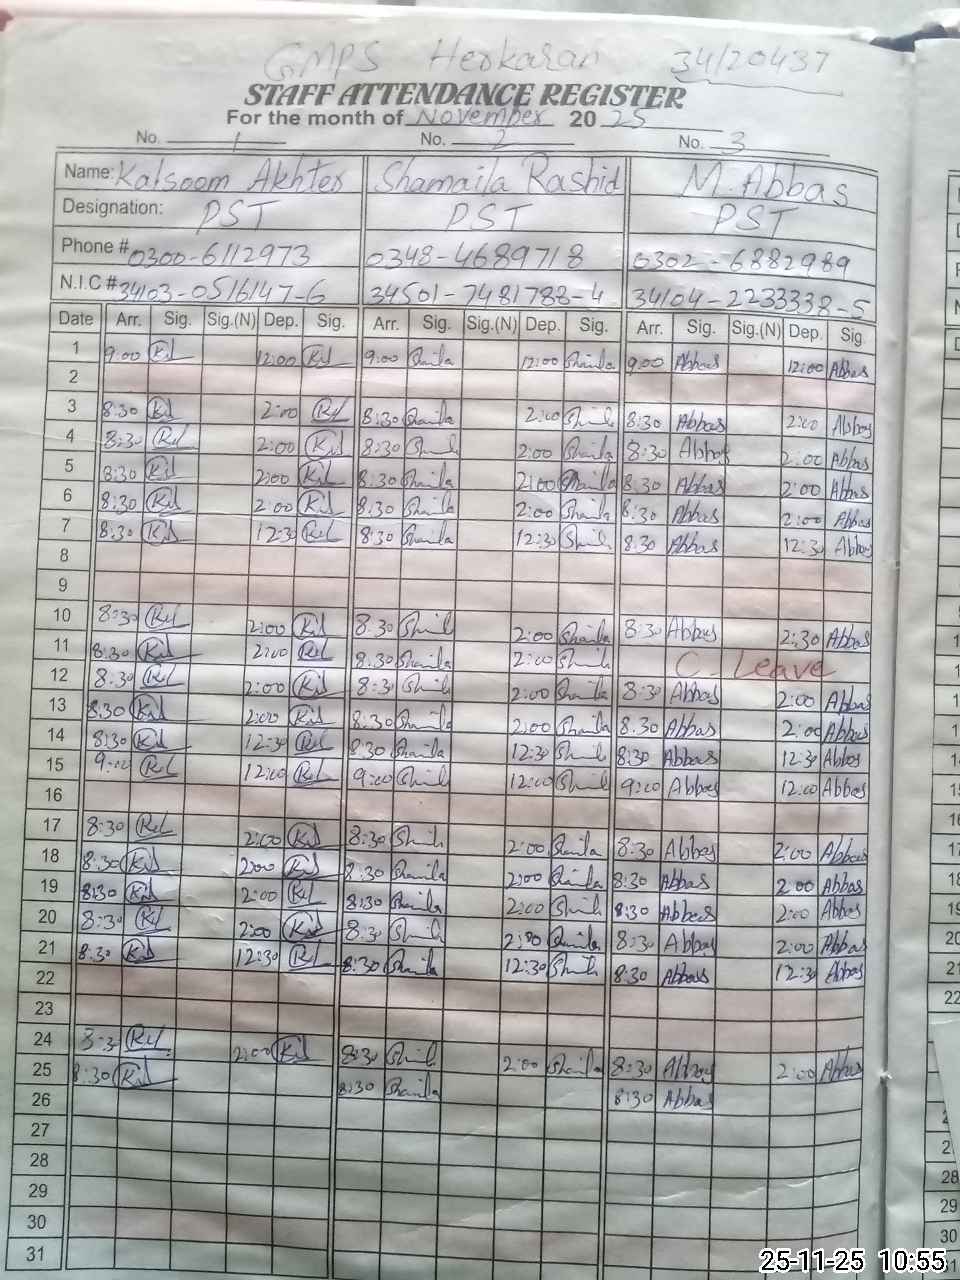 GMPS Herkaran 34/20437
STAFF ATTENDANCE REGISTER
For the month of November 20 25
No. 1 No. 2 No. 3
Name: Kalsoom Akhter Shamaila Rashid M. Abbas
Designation: PST PST PST
Phone # 0300-6112973 0348-4689718 0302-6882989
N.I.C # 34103-0516147-6 34501-7481788-4 34104-2233338-5
Date Arr. Sig. Sig.(N) Dep. Sig. Arr. Sig. Sig.(N) Dep. Sig. Arr. Sig. Sig.(N) Dep. Sig.
1 9:00 12:00 9:00 Shaila 12:00 Shaila 9:00 Abbas 12:00 Abbas
2
3 8:30 2:00 8:30 Shaila 2:00 8:30 Abbas 2:00 Abbas
4 8:30 2:00 8:30 2:00 Shaila 8:30 Abbas 2:00 Abbas
5 8:30 2:00 8:30 Shaila 2:00 Shaila 8:30 Abbas 2:00 Abbas
6 8:30 2:00 8:30 Shaila 2:00 8:30 Abbas 2:00 Abbas
7 8:30 12:30 8:30 Shaila 12:30 8:30 Abbas 12:30 Abbas
8
9
10 8:30 2:00 8:30 2:00 Shaila 8:30 Abbas 2:30 Abbas
11 8:30 2:00 8:30 Shaila 2:00 C. Leave
12 8:30 2:00 8:30 2:00 Shaila 8:30 Abbas 2:00 Abbas
13 8:30 2:00 8:30 Shaila 2:00 8:30 Abbas 2:00 Abbas
14 8:30 12:30 8:30 Shaila 12:30 8:30 Abbas 12:30 Abbas
15 9:00 12:00 9:00 12:00 9:00 Abbas 12:00 Abbas
16
17 8:30 2:00 8:30 2:00 Shaila 8:30 Abbas 2:00 Abbas
18 8:30 2:00 8:30 Shaila 2:00 Shaila 8:30 Abbas 2:00 Abbas
19 8:30 2:00 8:30 Shaila 2:00 8:30 Abbas 2:00 Abbas
20 8:30 2:00 8:30 2:00 Shaila 8:30 Abbas 2:00 Abbas
21 8:30 12:30 8:30 Shaila 12:30 8:30 Abbas 12:30 Abbas
22
23
24 8:30 2:00 8:30 2:00 Shaila 8:30 Abbas 2:00 Abbas
25 8:30 8:30 Shaila 8:30 Abbas
26
27
28
29
30
31
25-11-25 10:55